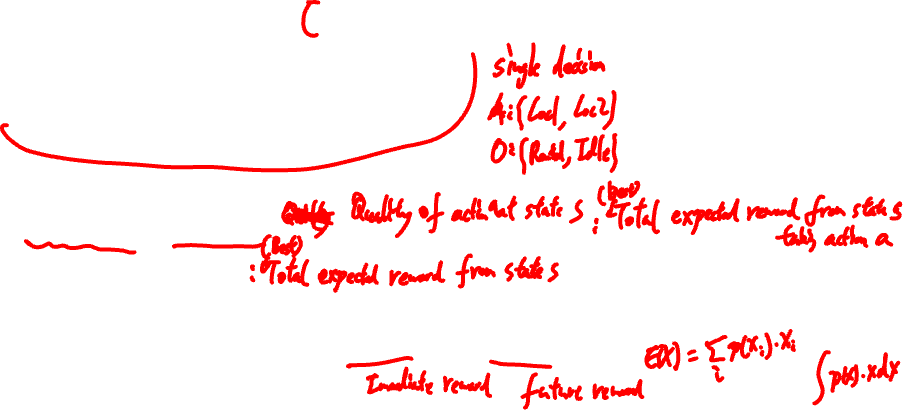 (
single decision
A:{Loc1, Loc2}
O:{Raid, Idle}
Quality Quality of action a at state s : (best) Total expected reward from state s
taking action a
(Best)
: Total expected reward from state s
E(X) = ∑ p(x_i)·x_i
i
∫p(x)·x dx
Immediate reward future reward